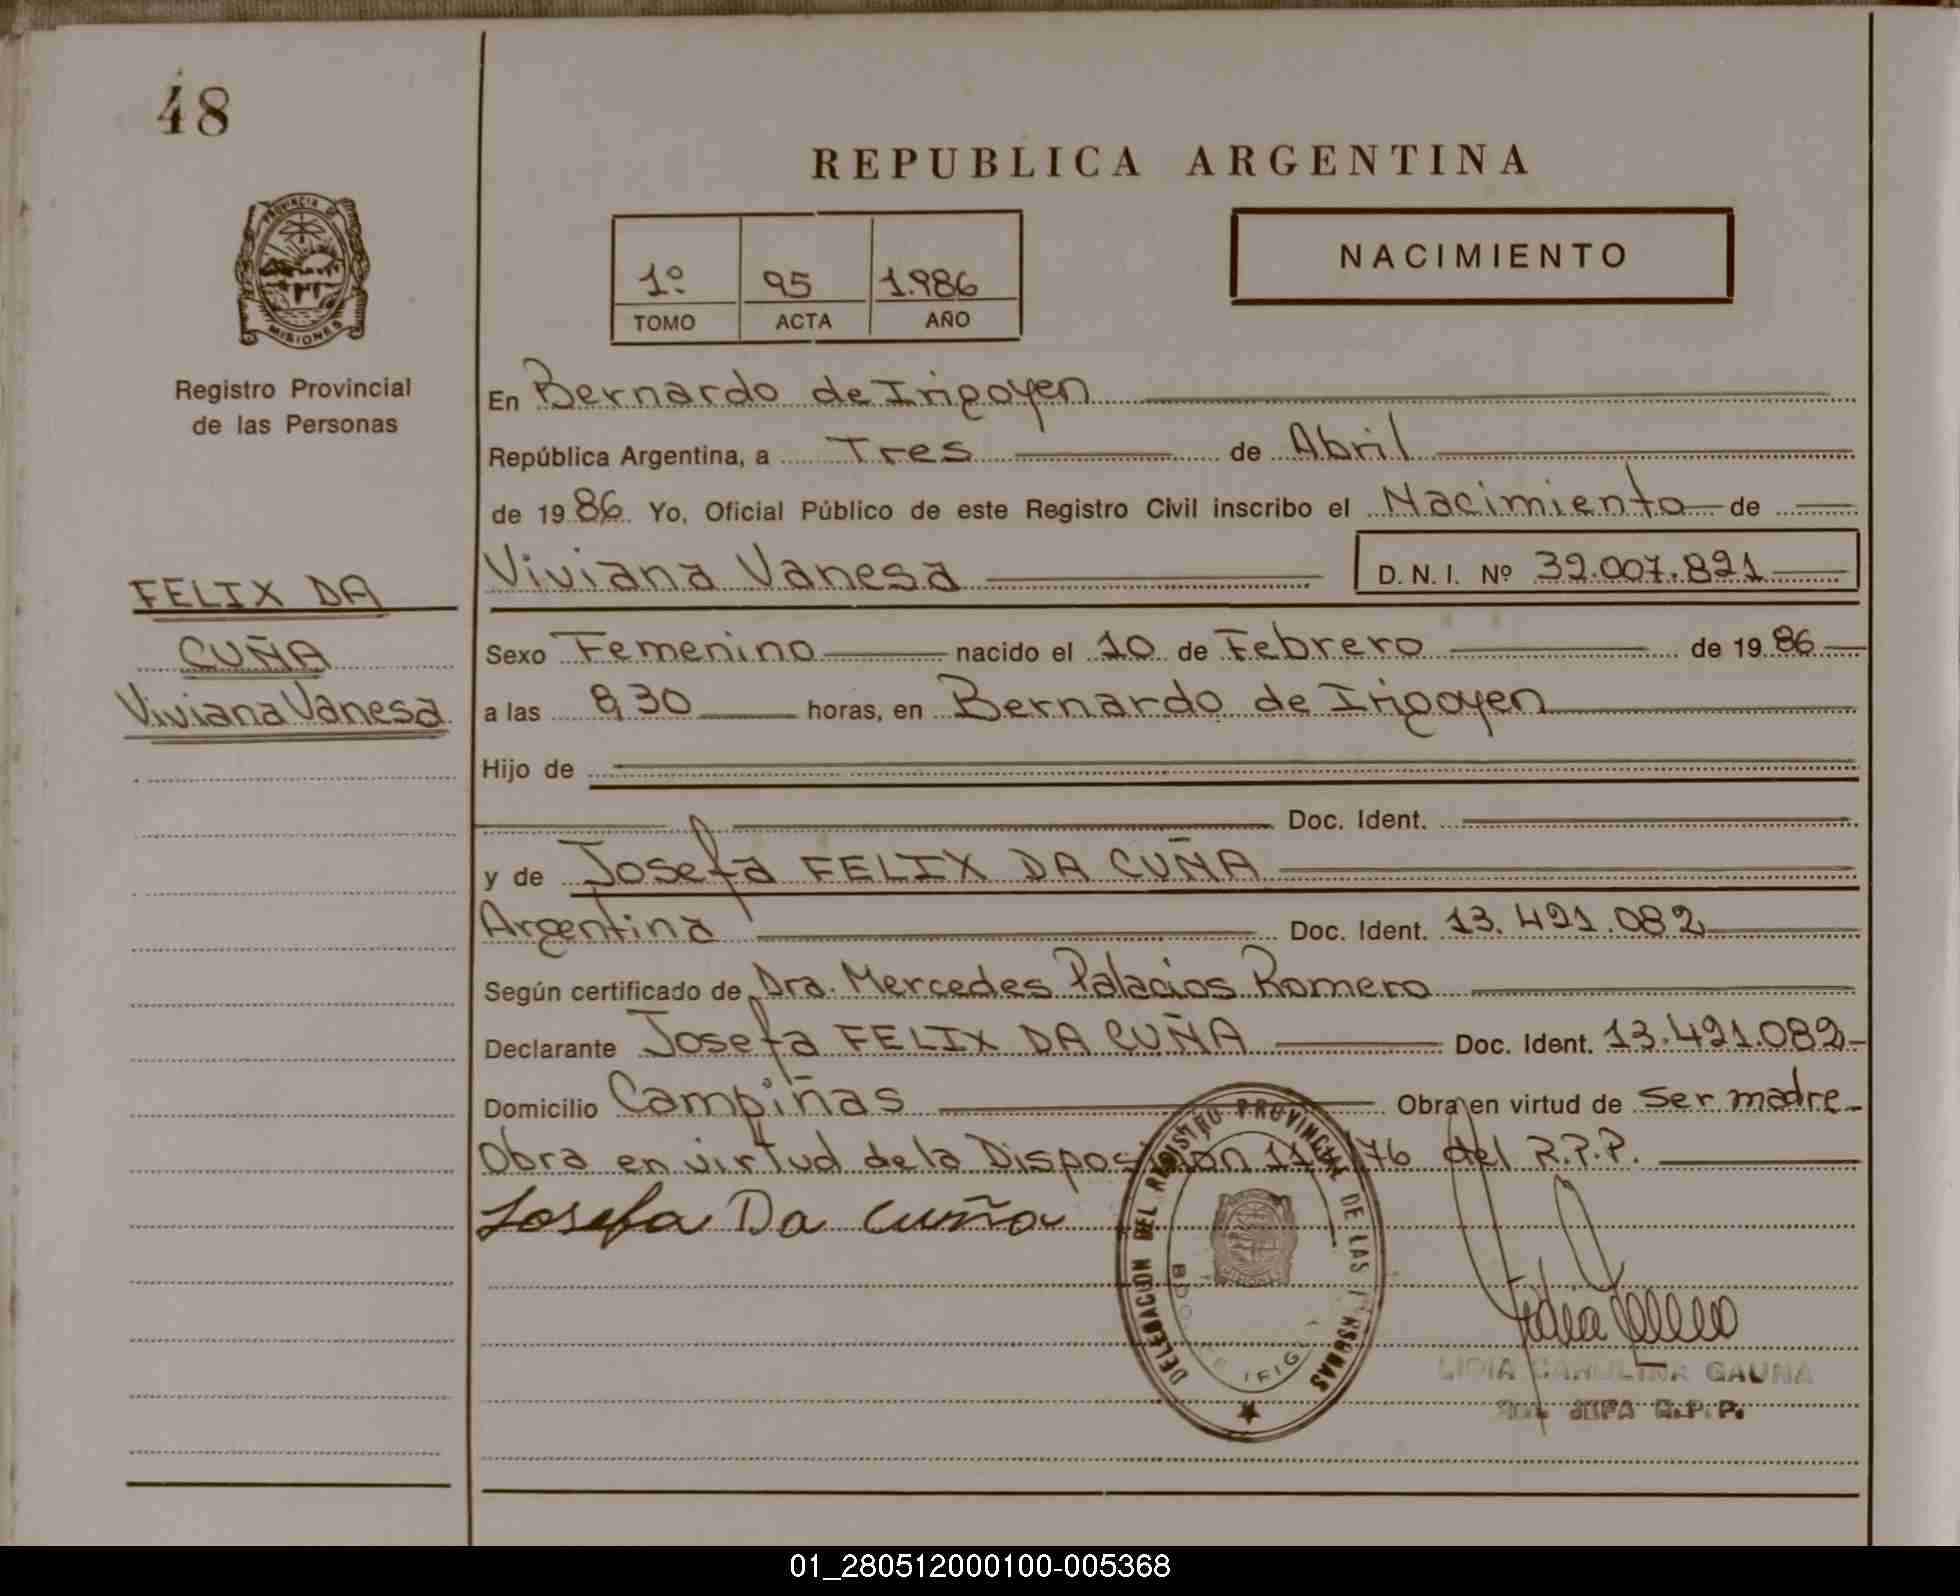 48
REPUBLICA ARGENTINA
PROVINCIA DE
MISIONES
Registro Provincial
de las Personas
1º 95 1.986
TOMO ACTA AÑO
NACIMIENTO
En Bernardo de Irigoyen
República Argentina, a Tres de Abril
de 1986. Yo, Oficial Público de este Registro Civil inscribo el Nacimiento de
Viviana Vanesa D. N. I. Nº 32.007.821
FELIX DA
CUÑA
Viviana Vanesa
Sexo Femenino nacido el 10 de Febrero de 1986
a las 8,30 horas, en Bernardo de Irigoyen
Hijo de
Doc. Ident.
y de Josefa FELIX DA CUÑA
Argentina Doc. Ident. 13.421.082
Según certificado de Dra. Mercedes Palacios Romero
Declarante Josefa FELIX DA CUÑA Doc. Ident. 13.421.082
Domicilio Campiñas Obra en virtud de ser madre
Obra en virtud de la Disposición /76 del R.P.P.
Josefa Da Cuña
DELEGACION DEL REGISTRO PROVINCIAL DE LAS PERSONAS
LIDIA CAROLINA GAUNA
JEFA R.P.P.
01_280512000100-005368